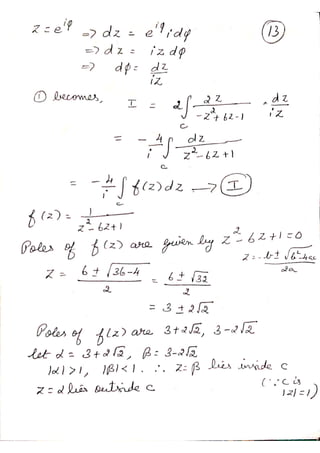 z = e^{iφ} => dz = e^{iφ} i dφ
(13)
=> dz = iz dφ
=> dφ = dz/iz
① becomes, I = 2∫_c 2z/(-z²+6z-1) · dz/iz
= -4/i ∫_c dz/(z²-6z+1)
= -4/i ∫_c f(z)dz → (I)
f(z) = 1/(z²-6z+1)
Poles of f(z) are given by z²-6z+1=0
z = (-b±√(b²-4ac))/2a
z = (6 ± √(36-4))/2 = (6 ± √32)/2
= 3 ± 2√2
Poles of f(z) are 3+2√2, 3-2√2
let α = 3+2√2, β = 3-2√2
|α|>1, |β|<1. ∴ z=β lies inside c
(∵ c is
z=α lies outside c |z|=1)